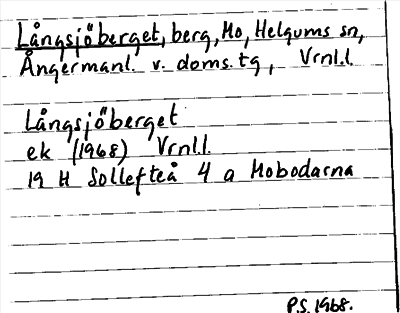 Långsjöberget, berg, Mo, Helgums sn,
Ångermanl. v. doms.tg, Vrnl.l.
Långsjöberget
ek (1968) Vrnl.l.
19 H Sollefteå 4 a Mobodarna
P.S. 1968.